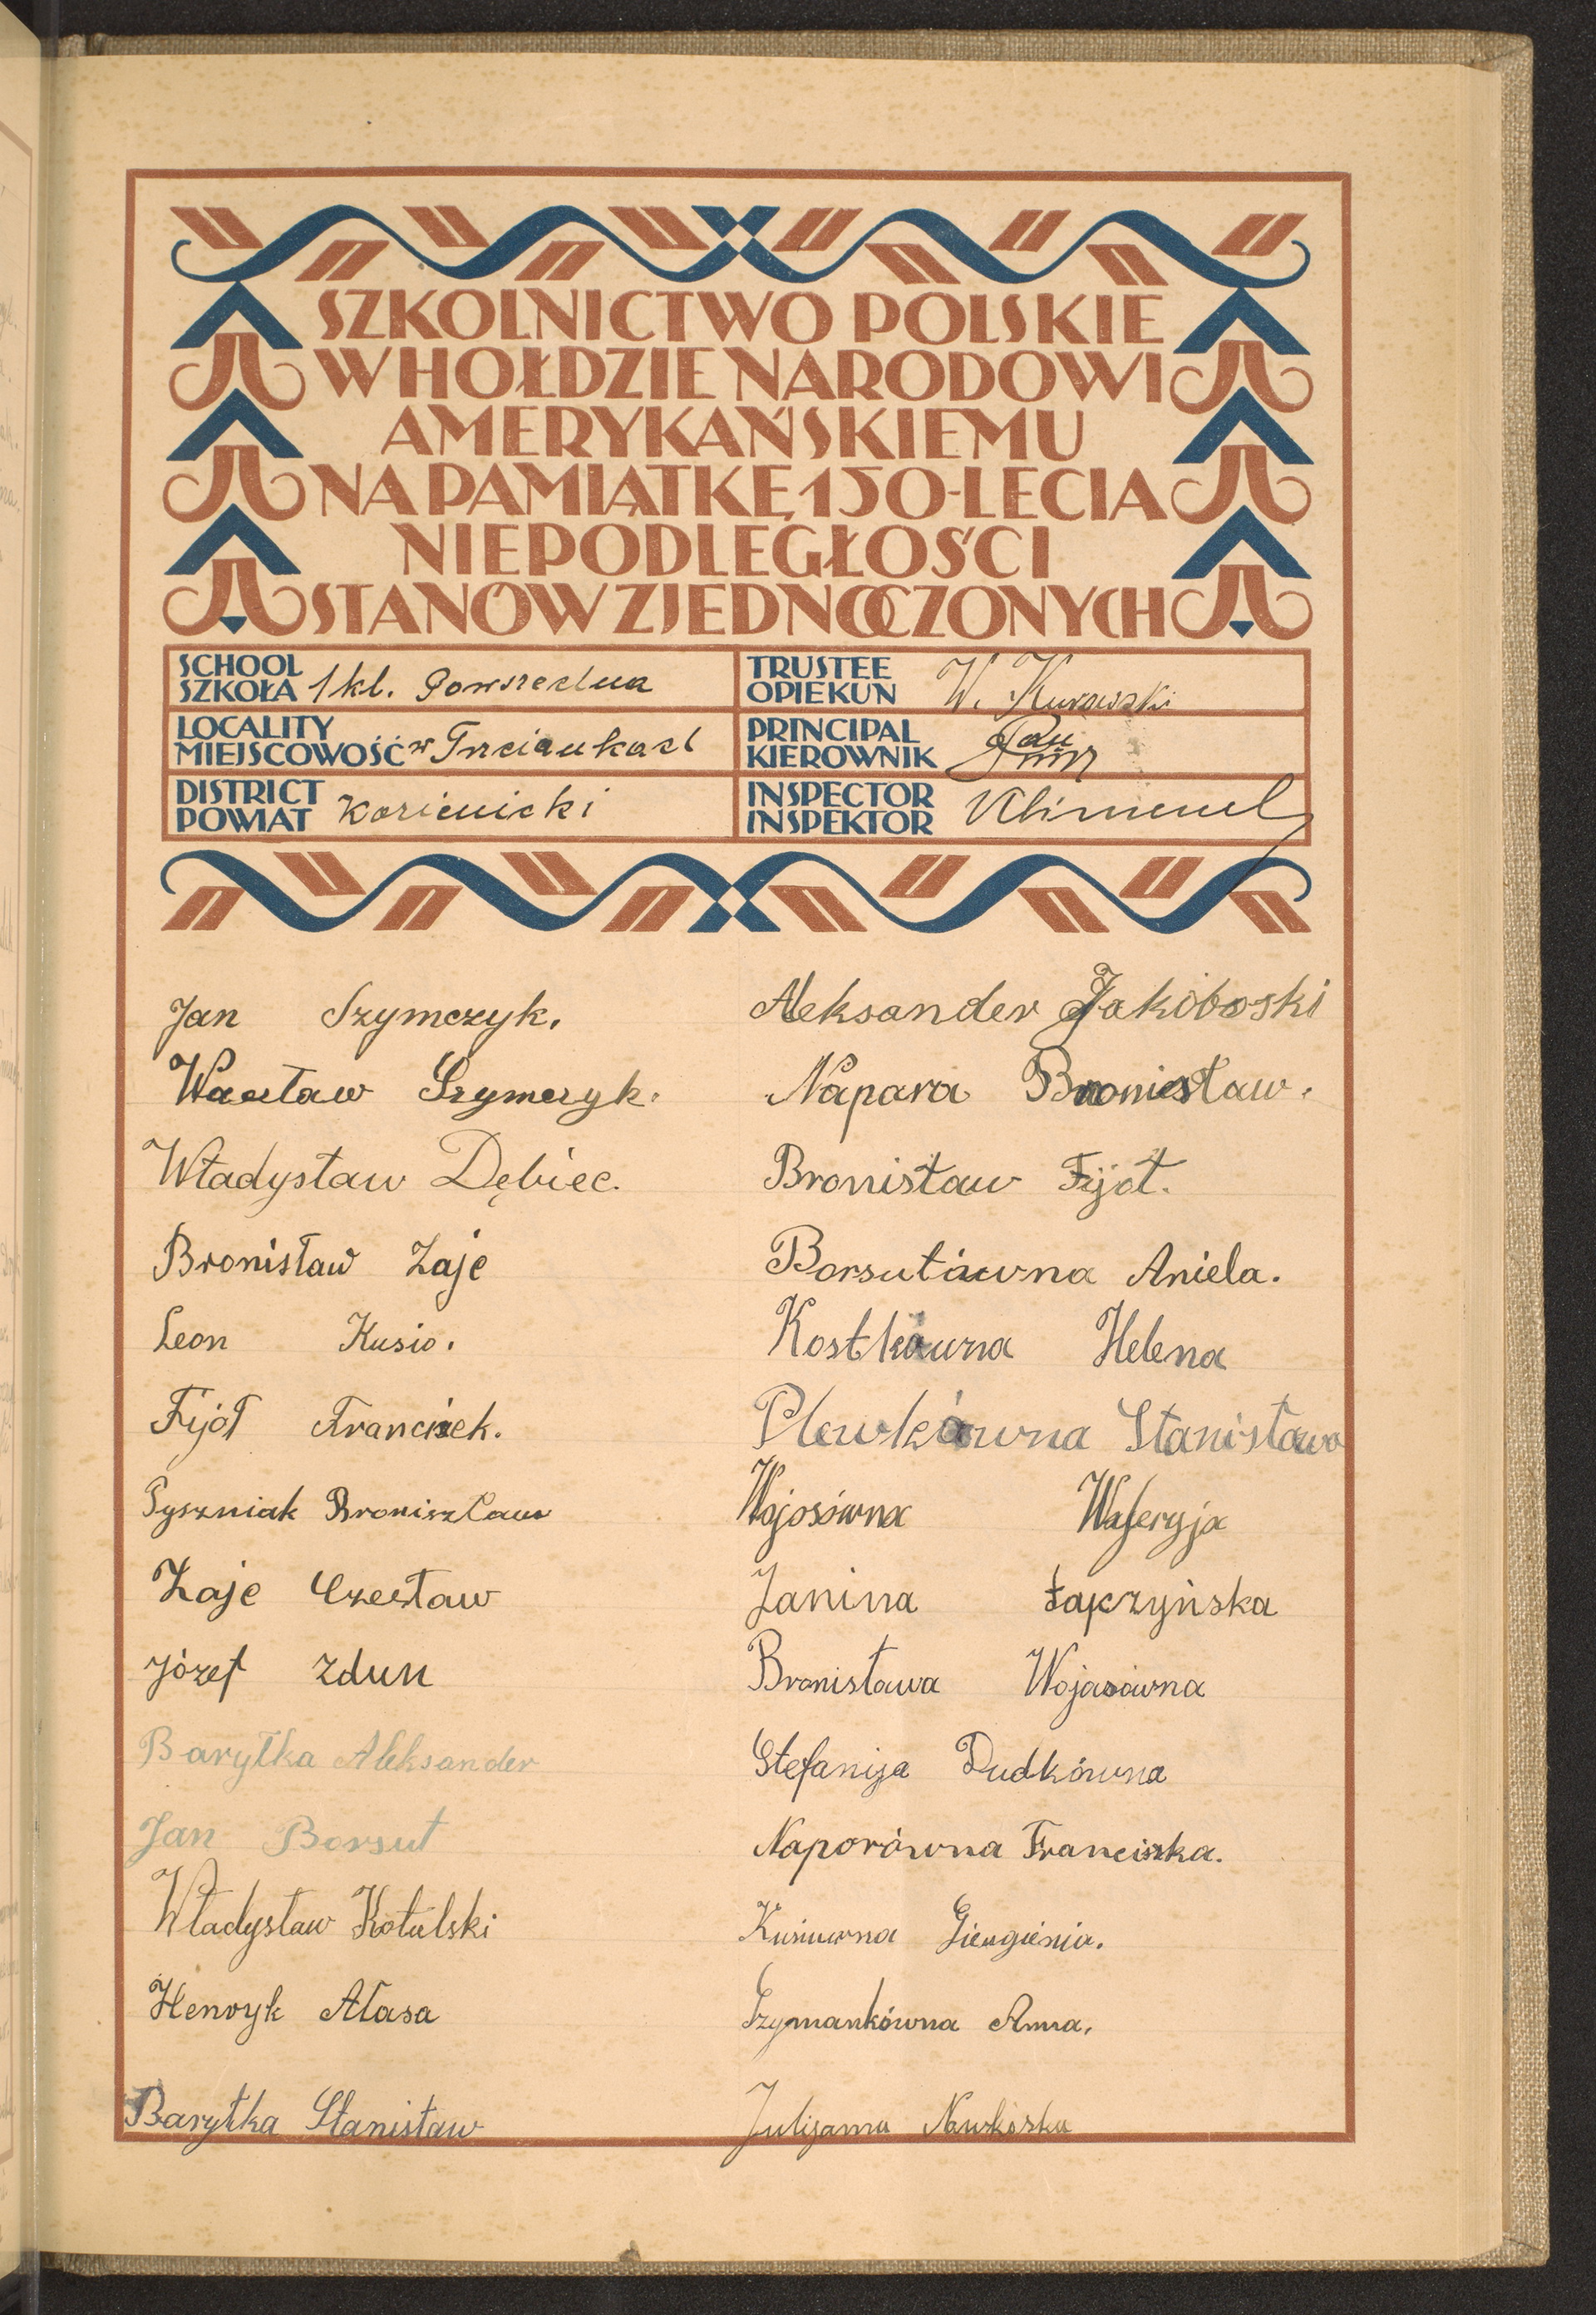 SZKOLNICTWO POLSKIE
W HOŁDZIE NARODOWI
AMERYKAŃSKIEMU
NA PAMIĄTKĘ 150-LECIA
NIEPODLEGŁOŚCI
STANÓW ZJEDNOCZONYCH
SCHOOL
SZKOŁA 1 kl. Powszechna
LOCALITY
MIEJSCOWOŚĆ w Trzciankach
DISTRICT
POWIAT Kozienicki
TRUSTEE
OPIEKUN W. Kurowski
PRINCIPAL
KIEROWNIK
INSPECTOR
INSPEKTOR
Jan Szymczyk.
Wacław Szymczyk.
Władysław Dębiec.
Bronisław Zaje
Leon Kusio.
Fijoł Francisek.
Pyszniak Broniszław
Zaje Czesław
Józef Zdun
Baryłka Aleksander
Jan Borsut
Władysław Kotulski
Henryk Ałasa
Baryłka Stanisław
Aleksander Jakoboski
Napara Broniesław.
Bronisław Fijoł.
Borsutówna Aniela.
Kostkówna Helena
Plewkówna Stanisława
Wojosówna Waleryja
Janina Łapczyńska
Bronisława Wojasówna
Stefanija Dudkówna
Naporówna Franciszka.
Kusiuwna Gieugienia.
Szymankówna Anna.
Julijanna Nawkoska